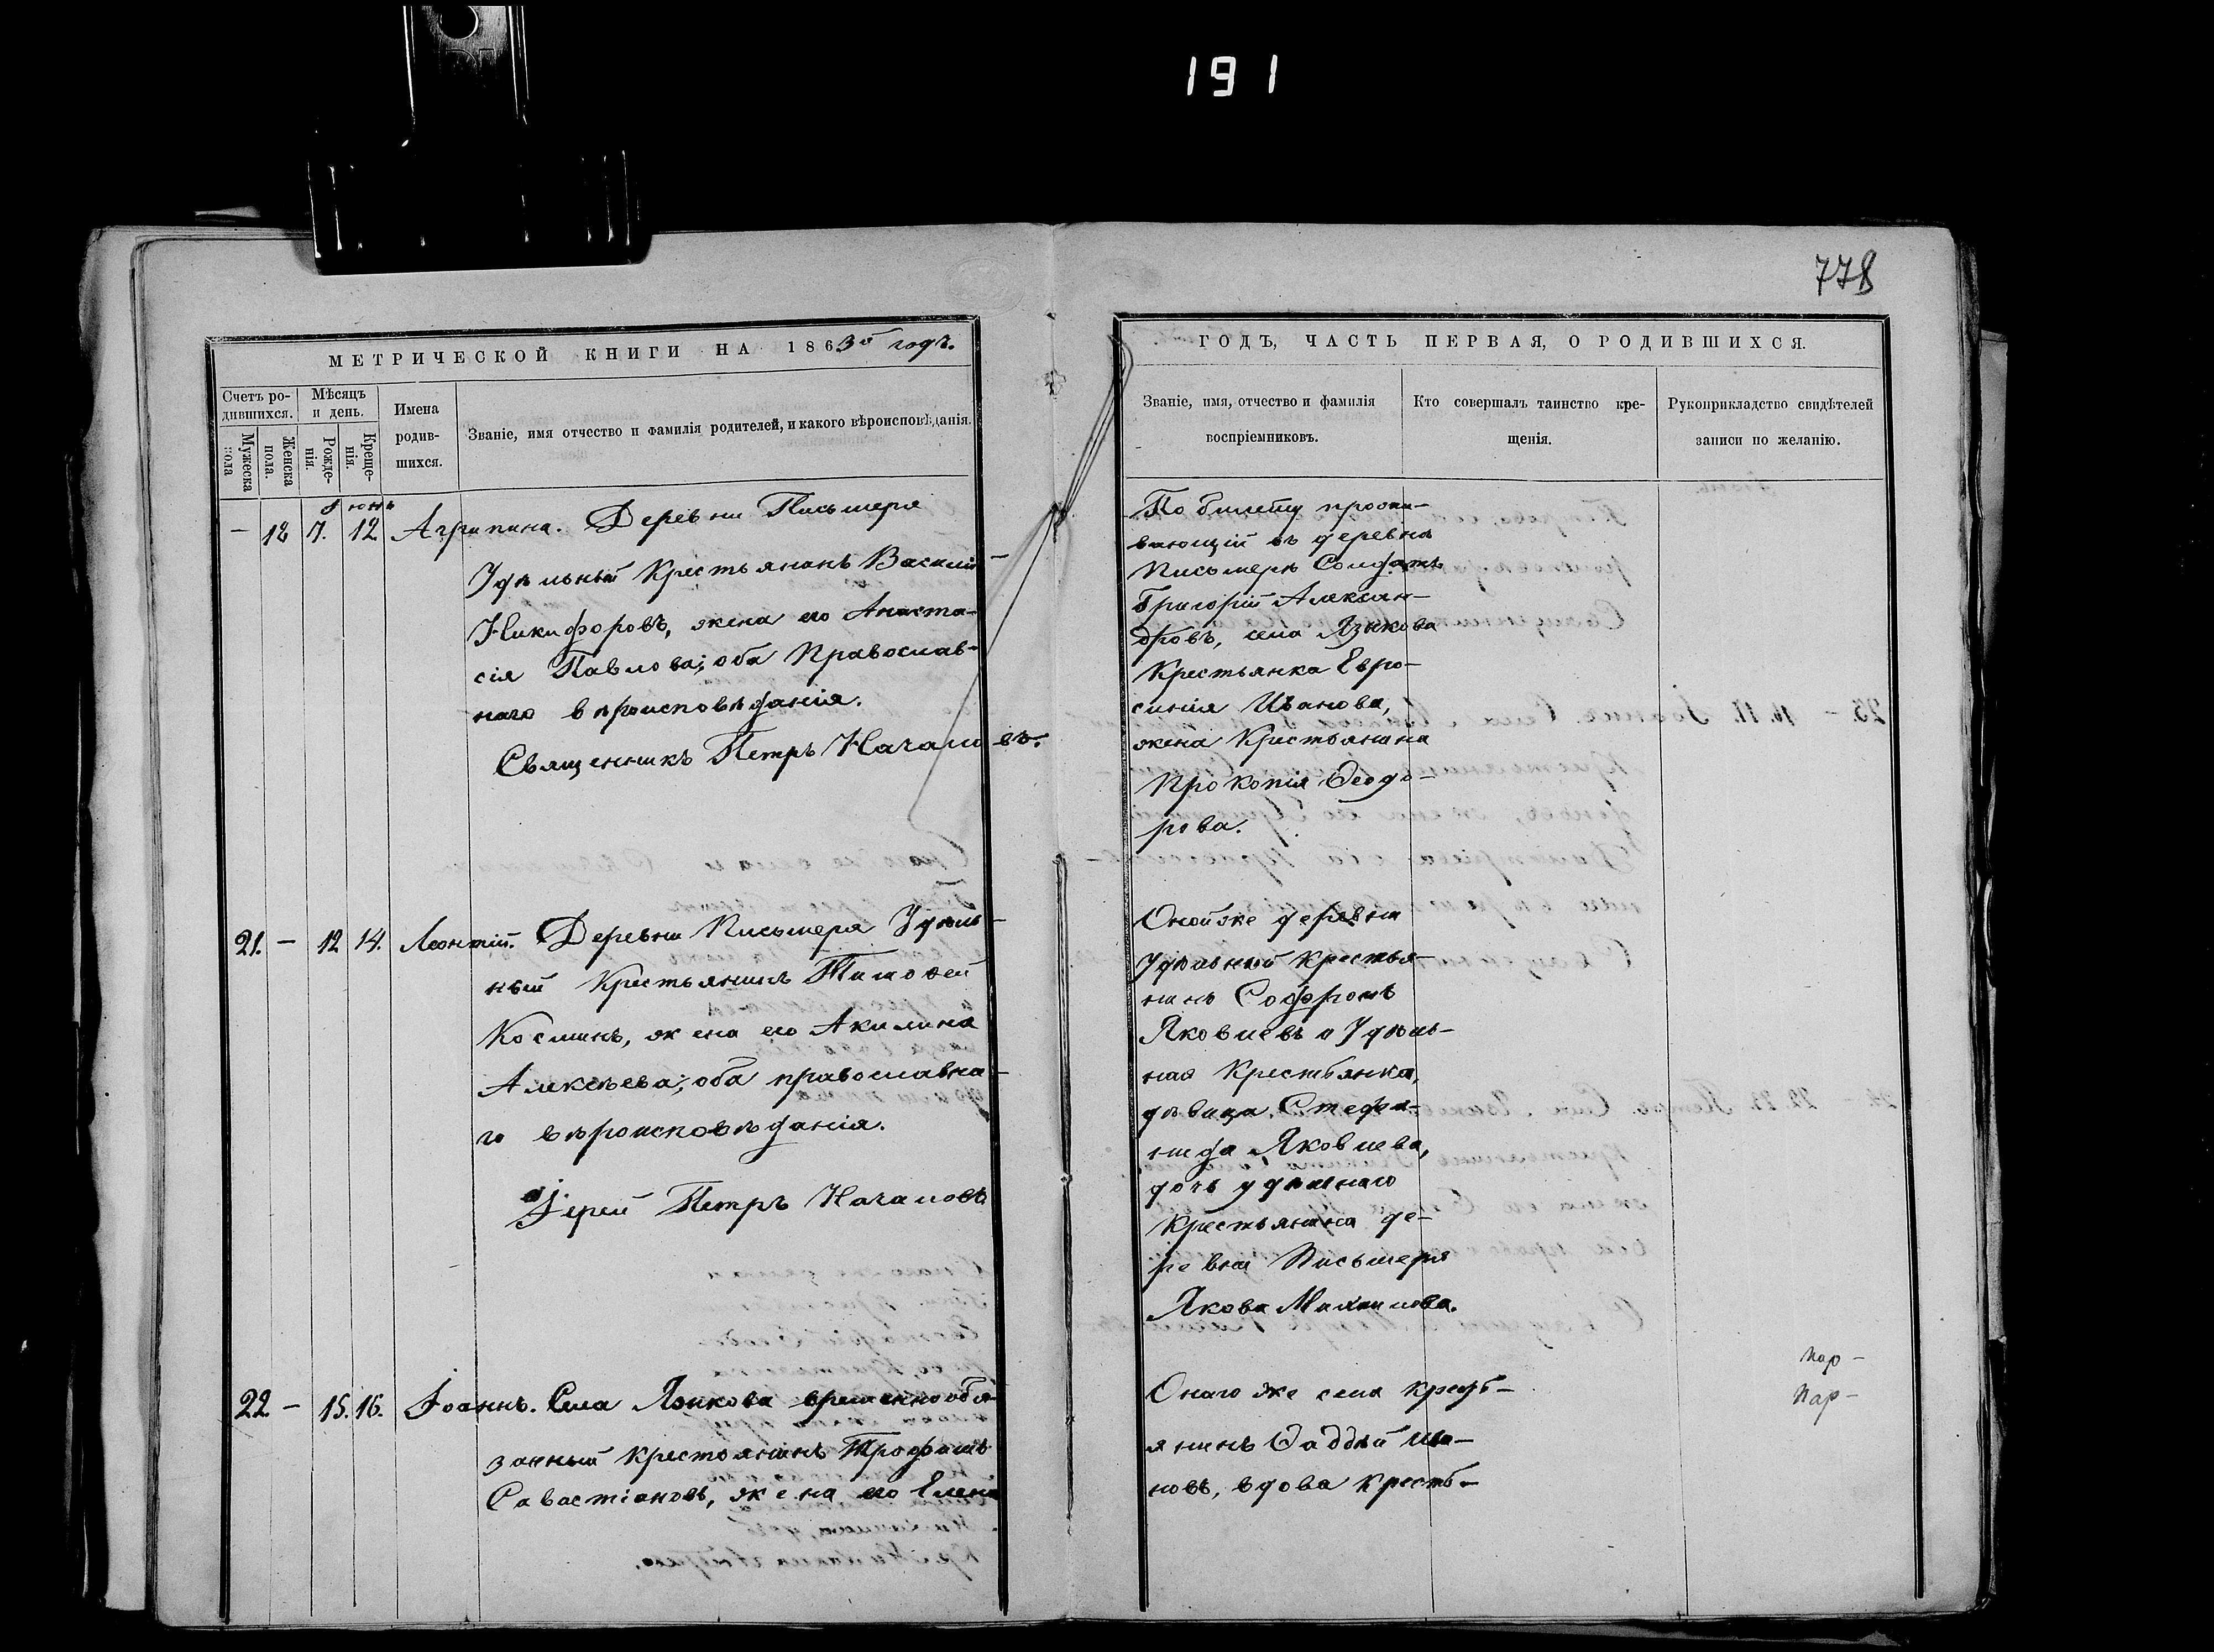 191
778
МЕТРИЧЕСКОЙ КНИГИ НА 1863й годъ.
Счетъ ро-
дившихся.
Мѣсяцъ
и день.
Мужеска
пола
Женска
пола.
Рожде-
нія.
Креще-
нія.
Имена
родив-
шихся.
Званіе, имя отчество и фамилія родителей, и какого вѣроисповѣданія.
Іюнь
— 12 7. 12 Агрипина. Деревни Письмеря
Удѣльный Крестьянинъ Василій
Никифоровъ, жена его Анаста-
сія Павлова; оба Православ-
наго вѣроисповѣданія.
Священникъ Петръ Началовъ.
21. — 12 14. Леонтій. Деревни Письмеря Удѣль-
ный Крестьянинъ Тимоѳей
Косминъ, жена его Акилина
Алексѣева; оба православна-
го вѣроисповѣданія.
Іерей Петръ Началовъ
22 — 15. 16. Іоаннъ. Села Языкова временнообя-
занный крестьянинъ Трофимъ
Савастіановъ, жена его Елена
ГОДЪ, ЧАСТЬ ПЕРВАЯ, О РОДИВШИХСЯ.
Званіе, имя, отчество и фамилія
воспріемниковъ.
Кто совершалъ таинство кре-
щенія.
Рукоприкладство свидѣтелей
записи по желанію.
По билету прожи-
вающій въ деревнѣ
Письмерѣ Солдатъ
Григорій Алексан-
дровъ, села Языкова
Крестьянка Евро-
синія Иванова,
жена Крестьянина
Прокопія Ѳеодо-
рова.
Онойже деревни
Удѣльный крестья-
нинъ Софронъ
Яковлевъ и Удѣль-
ная Крестьянка,
дѣвица, Стефа-
нида Яковлева,
дочь удѣльнаго
Крестьянина де-
ревни Письмеря
Якова Михаилова.
Онаго же села крестъ-
янинъ Ѳаддѣй Ива-
новъ, вдова кресть-